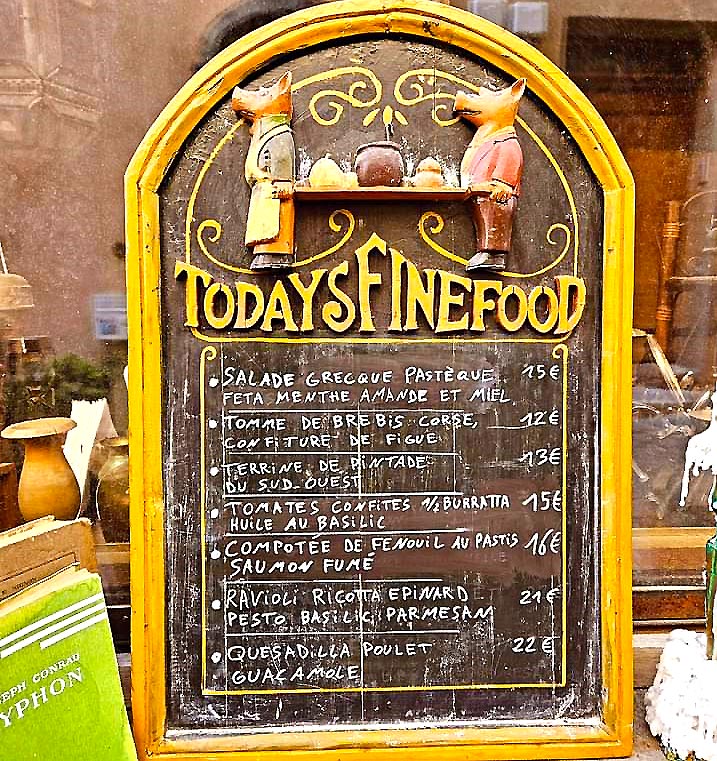 TODAYS FINEFOOD
• SALADE GRECQUE PASTÈQUE 15€
FETA MENTHE AMANDE ET MIEL,
• TOMME DE BREBIS CORSE, 12€
CONFITURE DE FIGUE
• TERRINE DE PINTADE 13€
DU SUD-OUEST
• TOMATES CONFITES ½ BURRATTA 15€
HUILE AU BASILIC
• COMPOTÉE DE FENOUIL AU PASTIS 16€
SAUMON FUMÉ
• RAVIOLI RICOTTA EPINARD 21€
PESTO BASILIC, PARMESAN
• QUESADILLA POULET 22€
GUACAMOLE
EPH CONRAD
YPHON